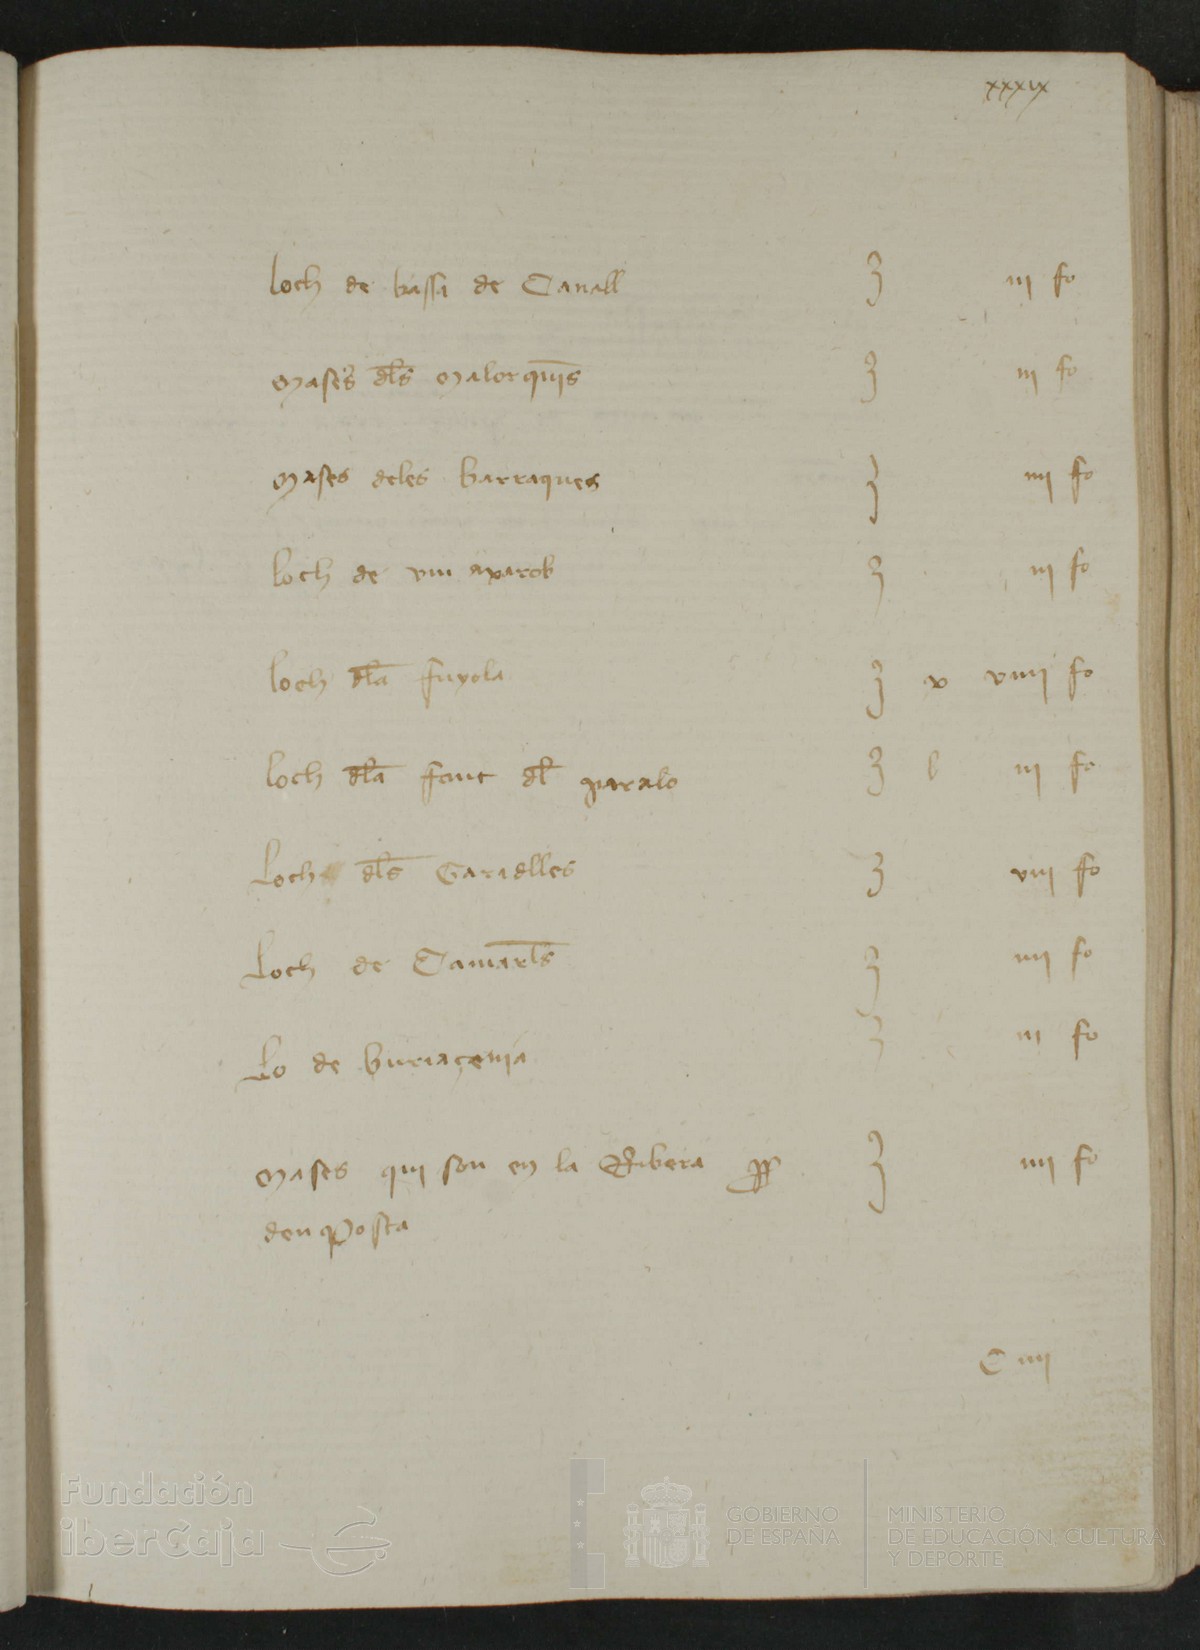 xxxix
loch de bassa de Canall iij fo
Mases dls Malorquis iij fo
Mases deles barraques iiij fo
loch de vinaxarob iij fo
loch dla fuyola v viiij fo
loch dla font dl l iij fo
Loch dls Garidelles viij fo
Loch de Camarls iiij fo
Lo de buriacenia iij fo
Mases qui son en la Ribera iiij fo
den posta
C iiij
Fundación
iberCaja
GOBIERNO
DE ESPAÑA
MINISTERIO
DE EDUCACIÓN, CULTURA
Y DEPORTE